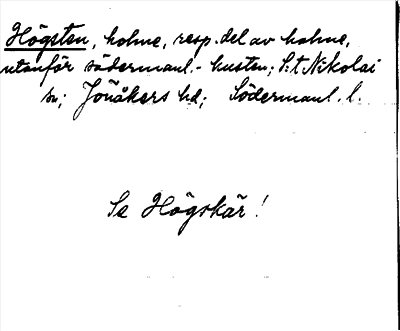 Högsten, holme, resp. del av holme,
utanför södermanl.- kusten; S:t Nikolai
sn; Jönåkers hd; Södermanl. l.
Se Högskär!